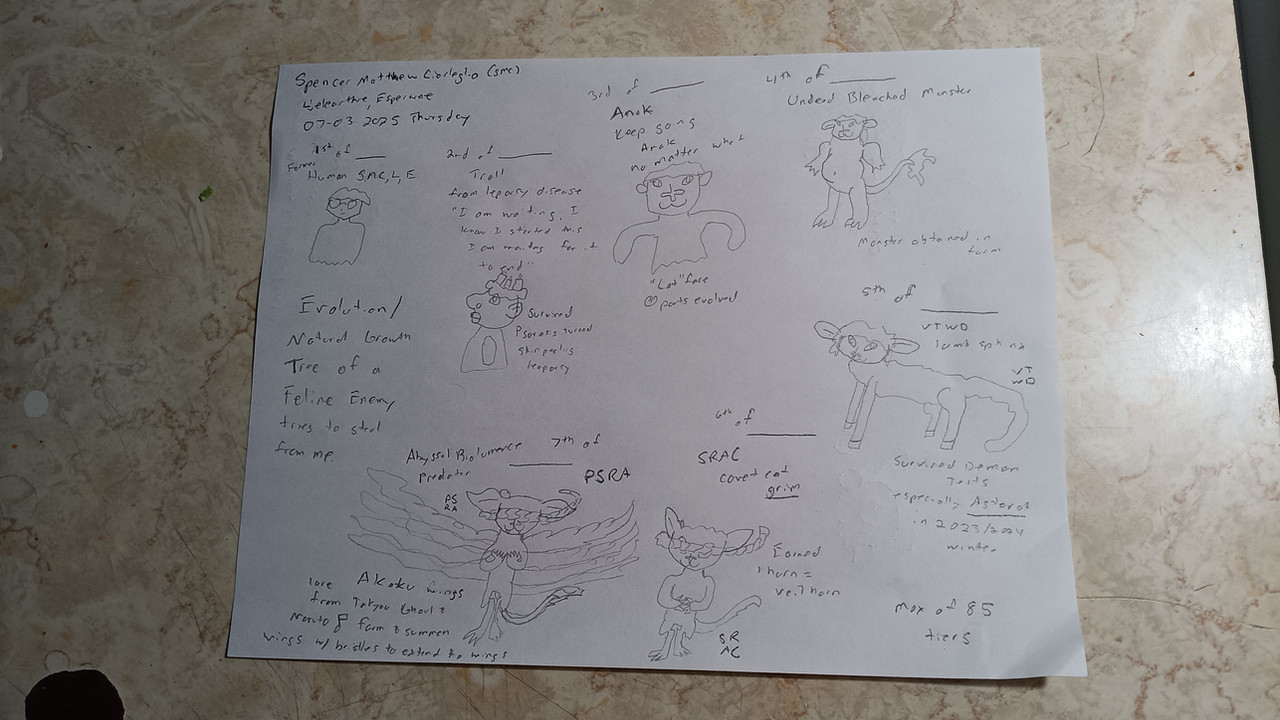 Spencer Matthew (smc)
07-03 2025 Thursday
1st of ___
Former
Human SMC, L, E
2nd of ___
Troll
from leparsy disease
"I am waiting, I
know I started this
I am waiting for it
to end"
Survived
Psorasis turned
skin peeling
leaparsy
3rd of ___
Anak
Keep going
Anak
no matter what
"Cat" face
parts evolved
4th of ___
Undead Bleached Monster
Monster obtained in
farm
5th of ___
VTWD
lamb sphinx
VT
WD
Survived Demon
Tests
especially Asterot
in 2023/2024
winter
Evolution/
Natural Growth
Tree of a
Feline Enemy
tries to steal
from me.
6th of ___
SRAC
covet cat
grim
Earned
1 horn =
veil horn
SR
AC
Abyssal Biolumence
Predator
7th of ___
PSRA
PS
RA
lore Akaku wings
from Tokyou Ghouls
Naruto 8 form & summon
wings w/ bristles to extend the wings
Max of 85
tiers